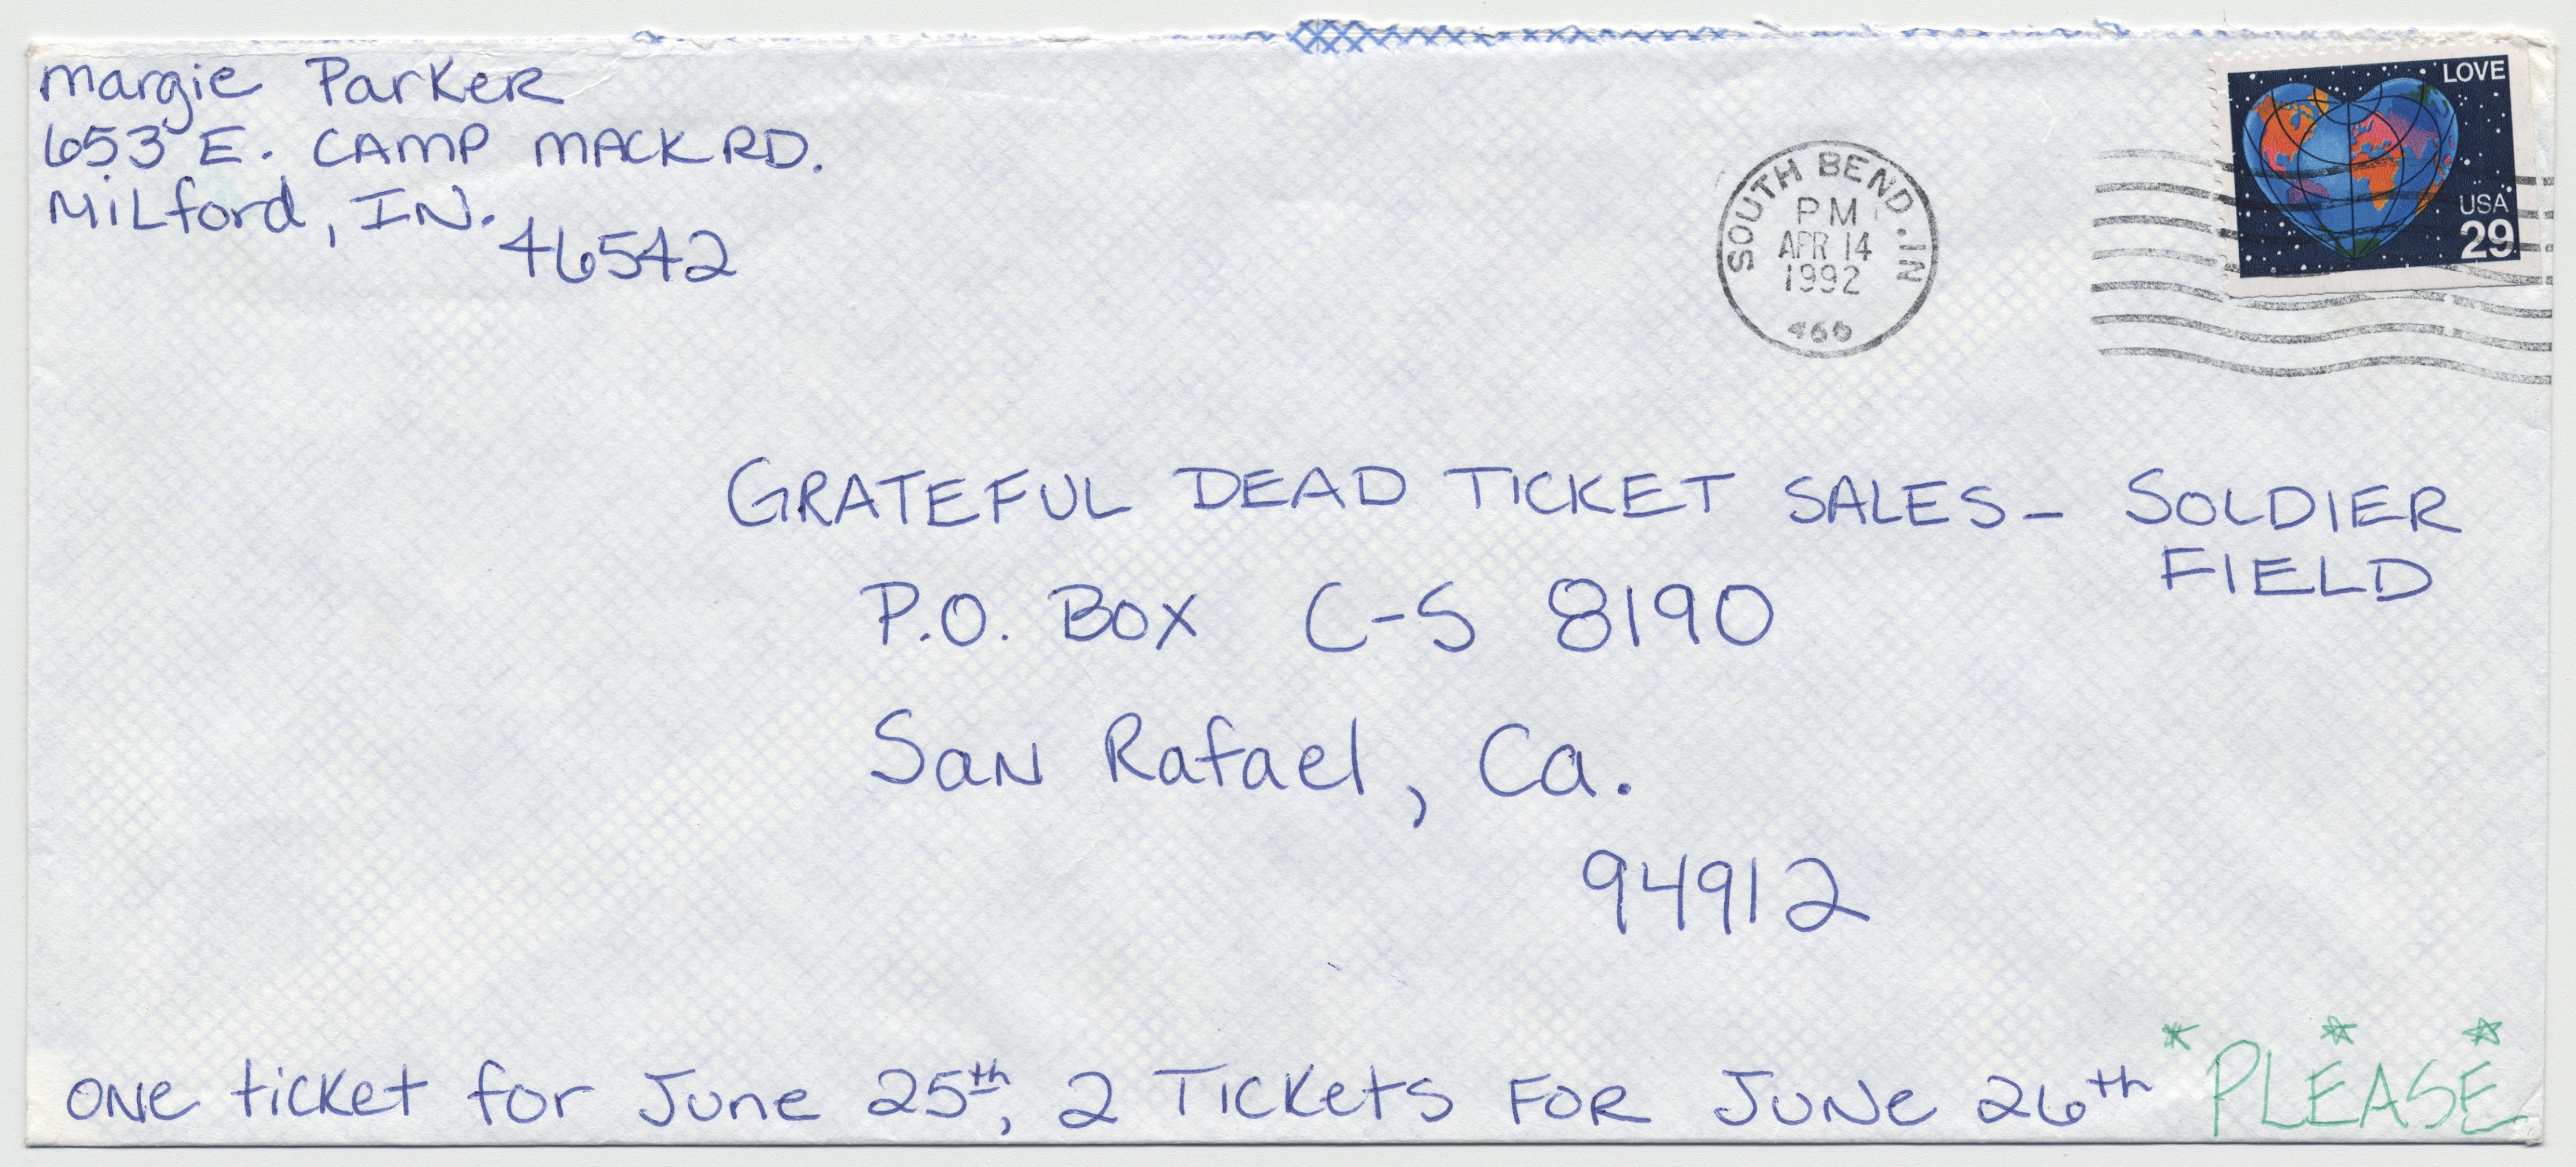 Margie Parker
653 E. CAMP MACK RD.
Milford, IN.
46542
LOVE
USA
29
SOUTH BEND, IN
PM
APR 14
1992
466
GRATEFUL DEAD TICKET SALES - SOLDIER
FIELD
P.O. Box C-S 8190
San Rafael, Ca.
94912
ONE ticket for June 25th, 2 Tickets FOR June 26th *PLEASE